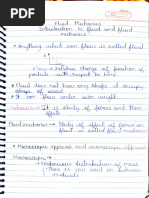 Fluid Mechanics
Introduction to fluid and fluid
mechanics
Anything which can flow is called fluid
Flow : relative change of position of
particle with respect to time
Fluid does not have any shape, it occupy
shape of vessel
It can flow under own weight
Mechanics → It is study of forces and their
effects
Fluid mechanics → Study of effect of forces on
fluid is called fluid mechanics
Macroscopic approach and microscopic approach
Macroscopic →
continuous distribution of mass
There is no void in between
molecules